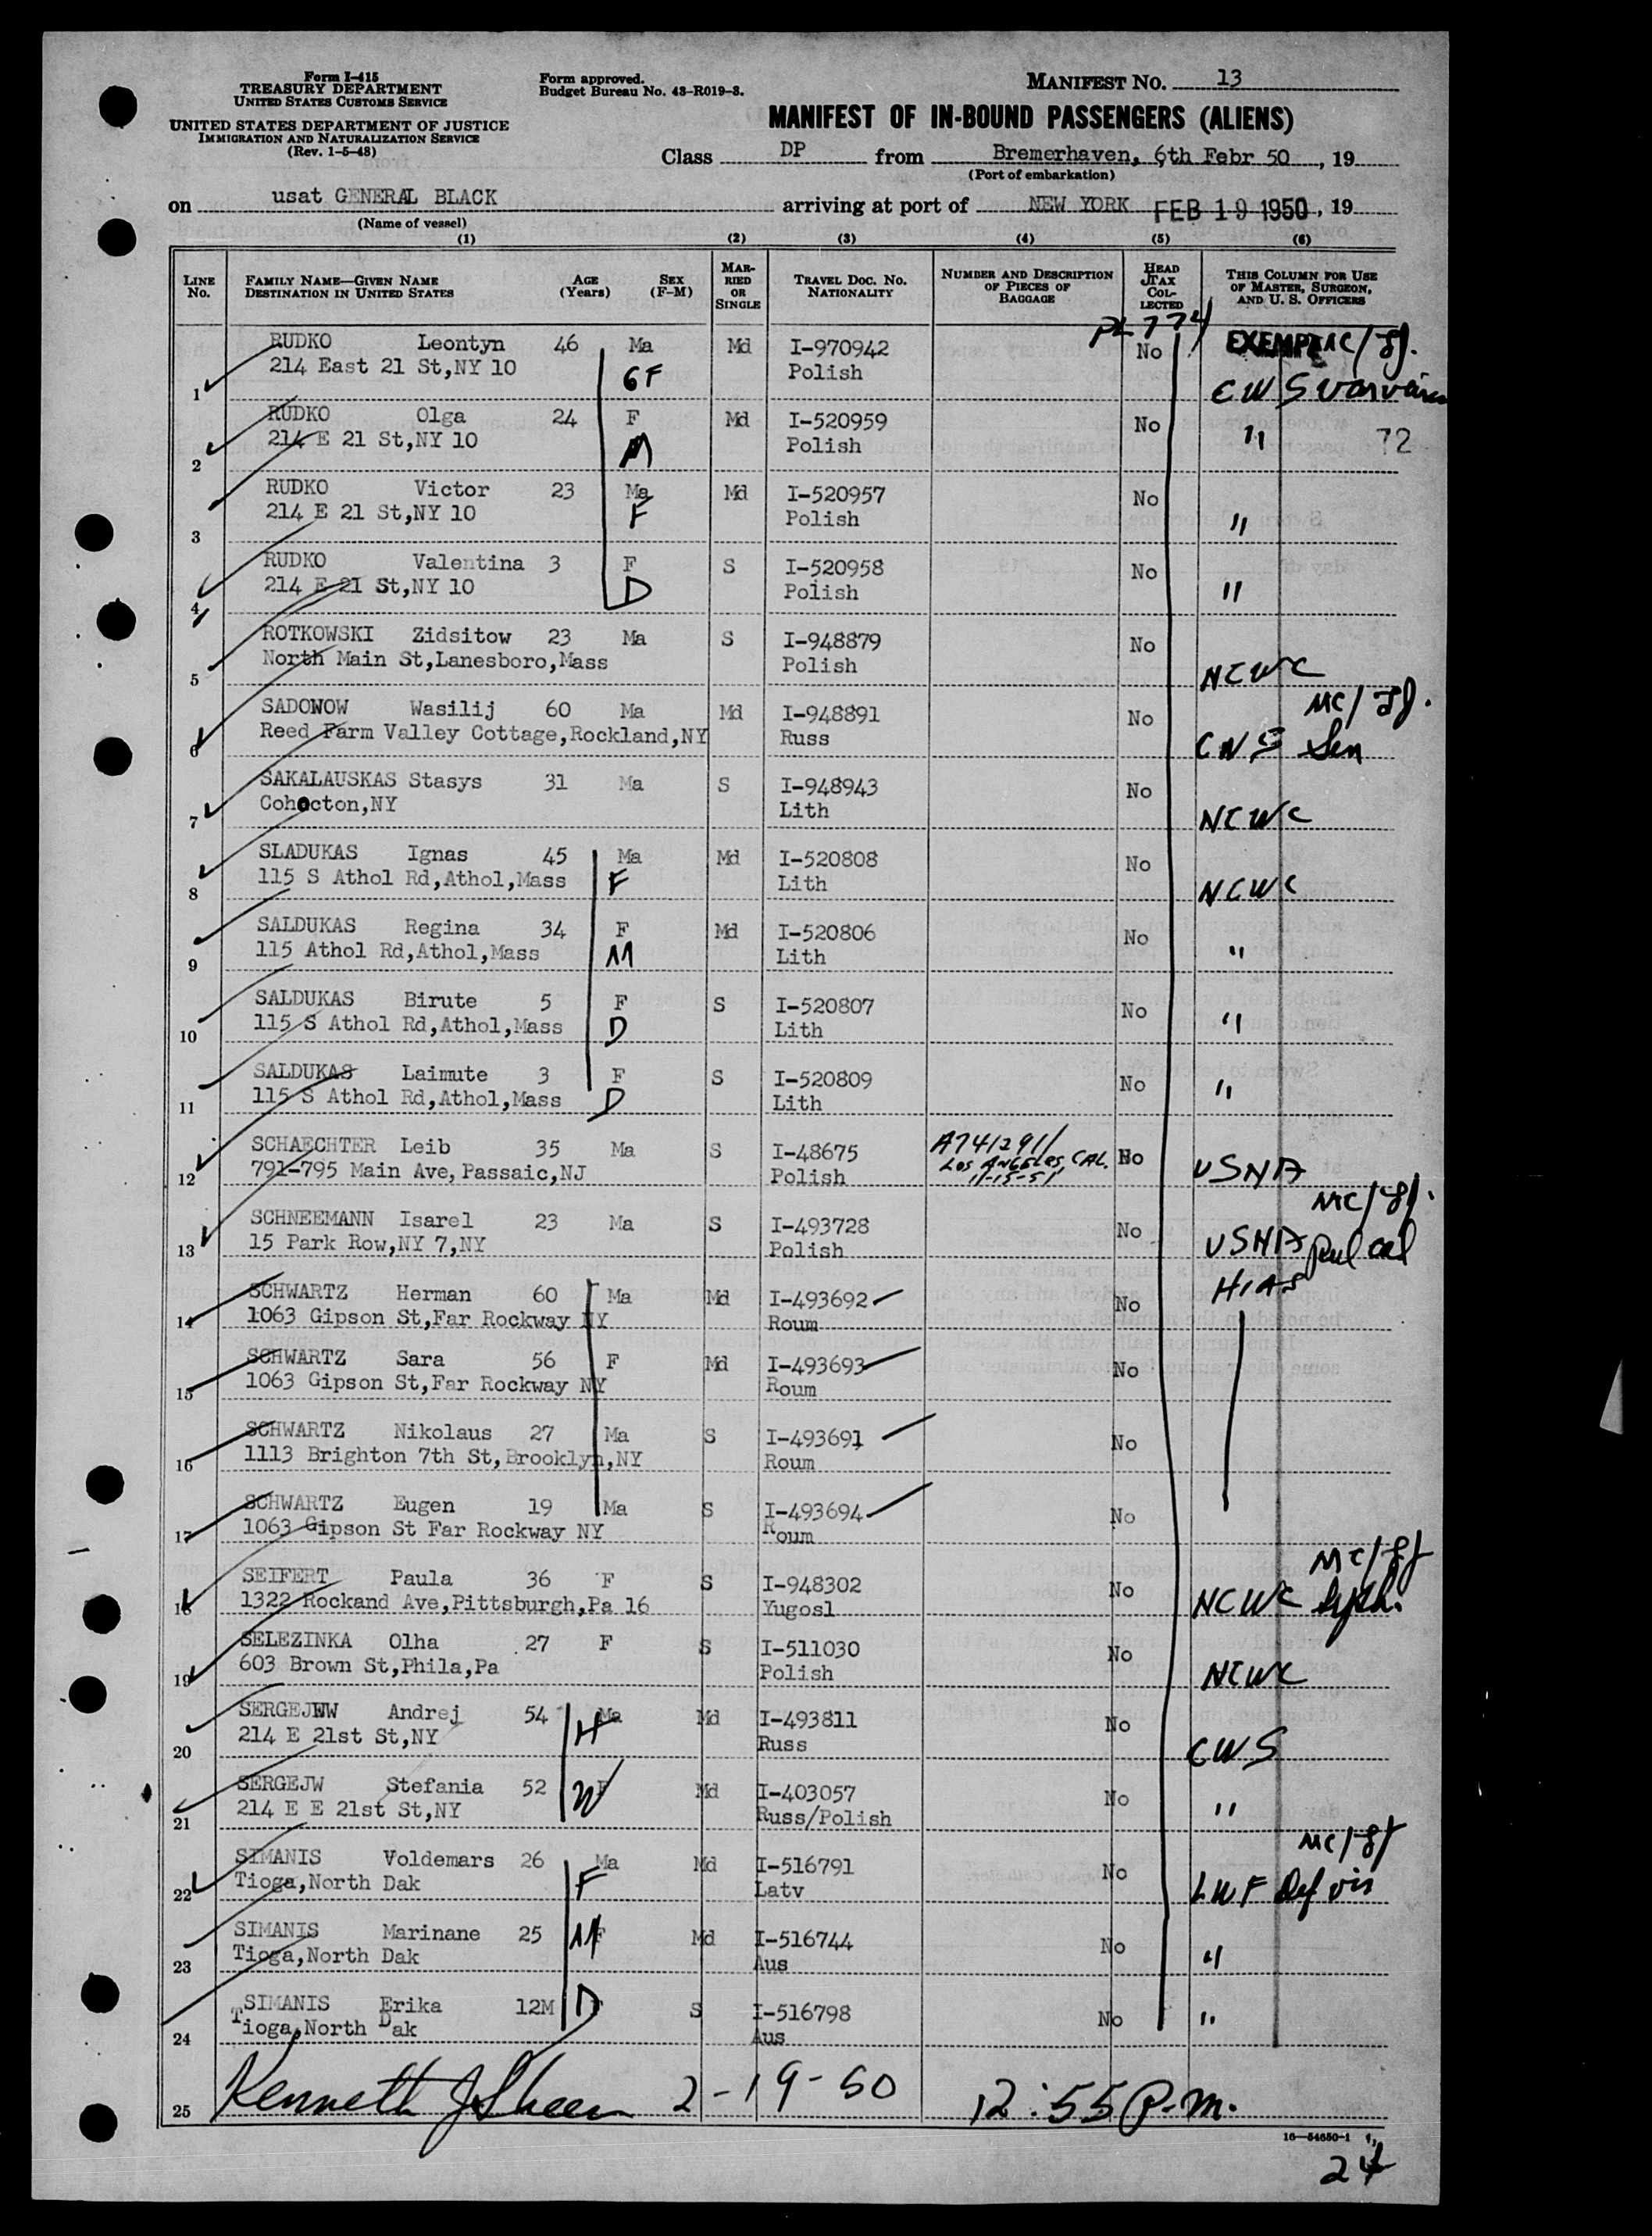 Form I-415
TREASURY DEPARTMENT
UNITED STATES CUSTOMS SERVICE
UNITED STATES DEPARTMENT OF JUSTICE
IMMIGRATION AND NATURALIZATION SERVICE
(Rev. 1-5-48)
Form approved.
Budget Bureau No. 43-R019-3.
MANIFEST NO. 13
MANIFEST OF IN-BOUND PASSENGERS (ALIENS)
Class DP from Bremerhaven, 6th Febr 50, 19
(Port of embarkation)
on usat GENERAL BLACK arriving at port of NEW YORK FEB 19 1950, 19
(Name of vessel)
(1) (2) (3) (4) (5) (6)
LINE No. FAMILY NAME—GIVEN NAME DESTINATION IN UNITED STATES AGE (Years) SEX (F-M) MARRIED OR SINGLE TRAVEL DOC. NO. NATIONALITY NUMBER AND DESCRIPTION OF PIECES OF BAGGAGE HEAD TAX COLLECTED THIS COLUMN FOR USE OF MASTER, SURGEON, AND U. S. OFFICERS
PL 774
RUDKO Leontyn 46 Ma Md I-970942 No EXEMPT
1 214 East 21 St,NY 10 GF Polish CWS
RUDKO Olga 24 F Md I-520959 No " 72
2 214 E 21 St,NY 10 M Polish
RUDKO Victor 23 Ma Md I-520957 No "
3 214 E 21 St,NY 10 F Polish
RUDKO Valentina 3 F S I-520958 No "
4 214 E 21 St,NY 10 D Polish
ROTKOWSKI Zidsitow 23 Ma S I-948879 No
5 North Main St,Lanesboro,Mass Polish NCWC
SADOWOW Wasilij 60 Ma Md I-948891 No
6 Reed Farm Valley Cottage,Rockland,NY Russ CWS Sen
SAKALAUSKAS Stasys 31 Ma S I-948943 No
7 Cohocton,NY Lith NCWC
SLADUKAS Ignas 45 Ma Md I-520808 No
8 115 S Athol Rd,Athol,Mass F Lith NCWC
SALDUKAS Regina 34 F Md I-520806 No "
9 115 Athol Rd,Athol,Mass M Lith
SALDUKAS Birute 5 F S I-520807 No "
10 115 S Athol Rd,Athol,Mass D Lith
SALDUKAS Laimute 3 F S I-520809 No "
11 115 S Athol Rd,Athol,Mass D Lith
SCHAECHTER Leib 35 Ma S I-48675 A7412911 No
12 791-795 Main Ave,Passaic,NJ Polish LOS ANGELOS, CAL. 11-15-51 USNA
SCHNEEMANN Isarel 23 Ma S I-493728 No
13 15 Park Row,NY 7,NY Polish USNA
SCHWARTZ Herman 60 Ma Md I-493692 No HIAS
14 1063 Gipson St,Far Rockway NY Roum
SCHWARTZ Sara 56 F Md I-493693 No
15 1063 Gipson St,Far Rockway NY Roum
SCHWARTZ Nikolaus 27 Ma S I-493691 No
16 1113 Brighton 7th St,Brooklyn,NY Roum
SCHWARTZ Eugen 19 Ma S I-493694 No
17 1063 Gipson St Far Rockway NY Roum
SEIFERT Paula 36 F S I-948302 No
18 1322 Rockand Ave,Pittsburgh,Pa 16 Yugosl NCWC
SELEZINKA Olha 27 F S I-511030 No
19 603 Brown St,Phila,Pa Polish NCWC
SERGEJEW Andrej 54 Ma Md I-493811 No
20 214 E 21st St,NY H Russ CWS
SERGEJW Stefania 52 F Md I-403057 No "
21 214 E E 21st St,NY W Russ/Polish
SIMANIS Voldemars 26 Ma Md I-516791 No
22 Tioga,North Dak F Latv LWF Def vis
SIMANIS Marinane 25 F Md I-516744 No "
23 Tioga,North Dak M Aus
SIMANIS Erika 12M S I-516798 No "
24 Tioga,North Dak D Aus
25 Kenneth J Sheen 2-19-50 12:55 P.M.
16—54650-1
24